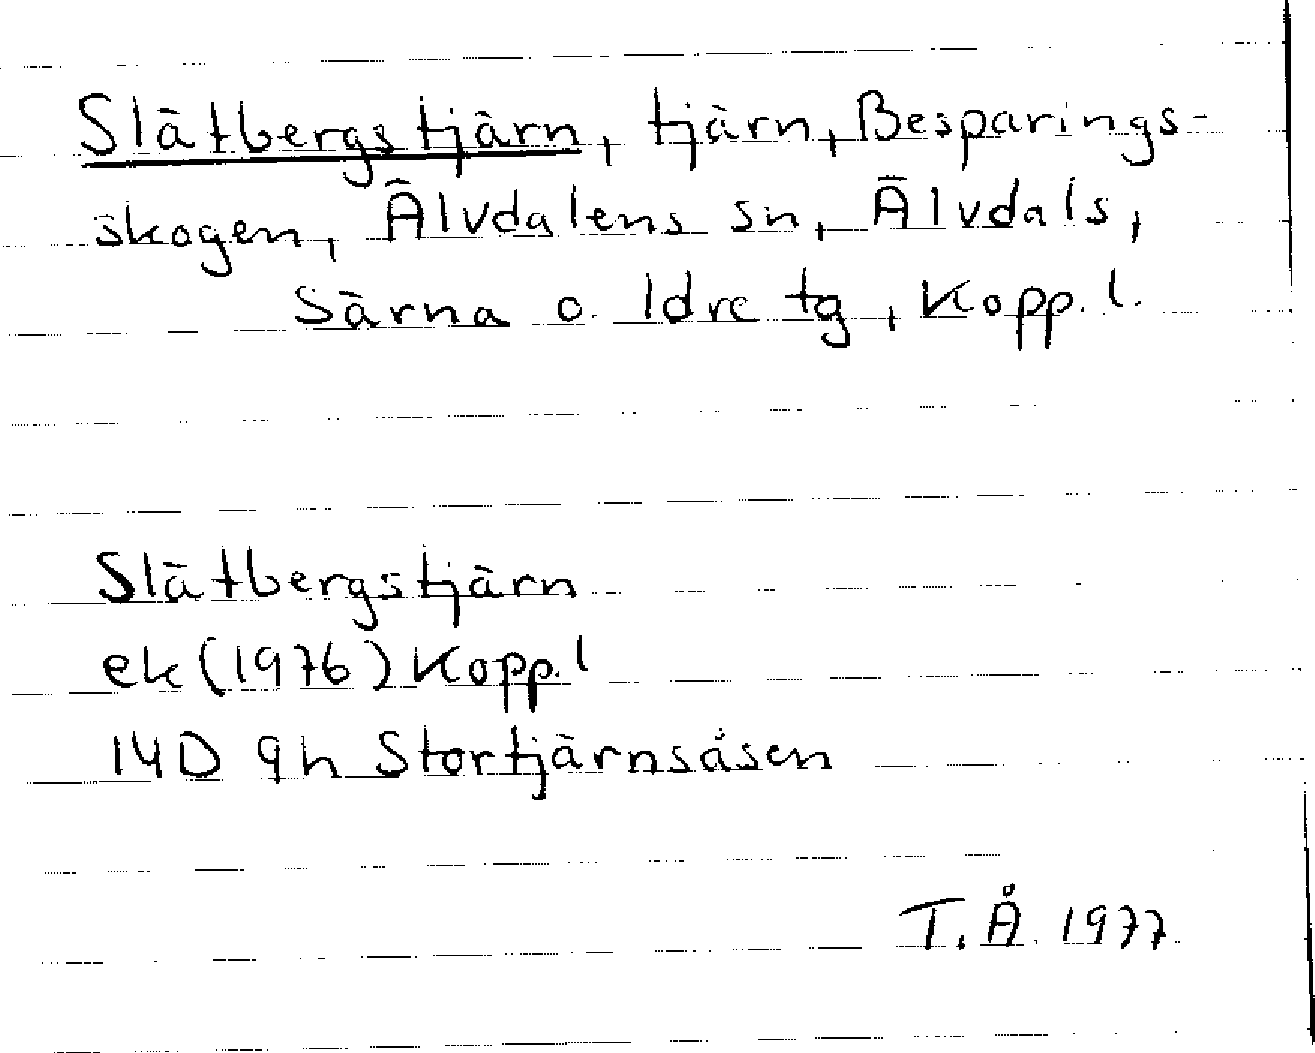 Slätbergstjärn, tjärn, Besparings-
skogen, Älvdalens sn, Älvdals,
Särna o. Idre tg, Kopp. l.
Slätbergstjärn
ek (1976) Kopp. l
14D 9h Stortjärnsåsen
T. Å. 1977